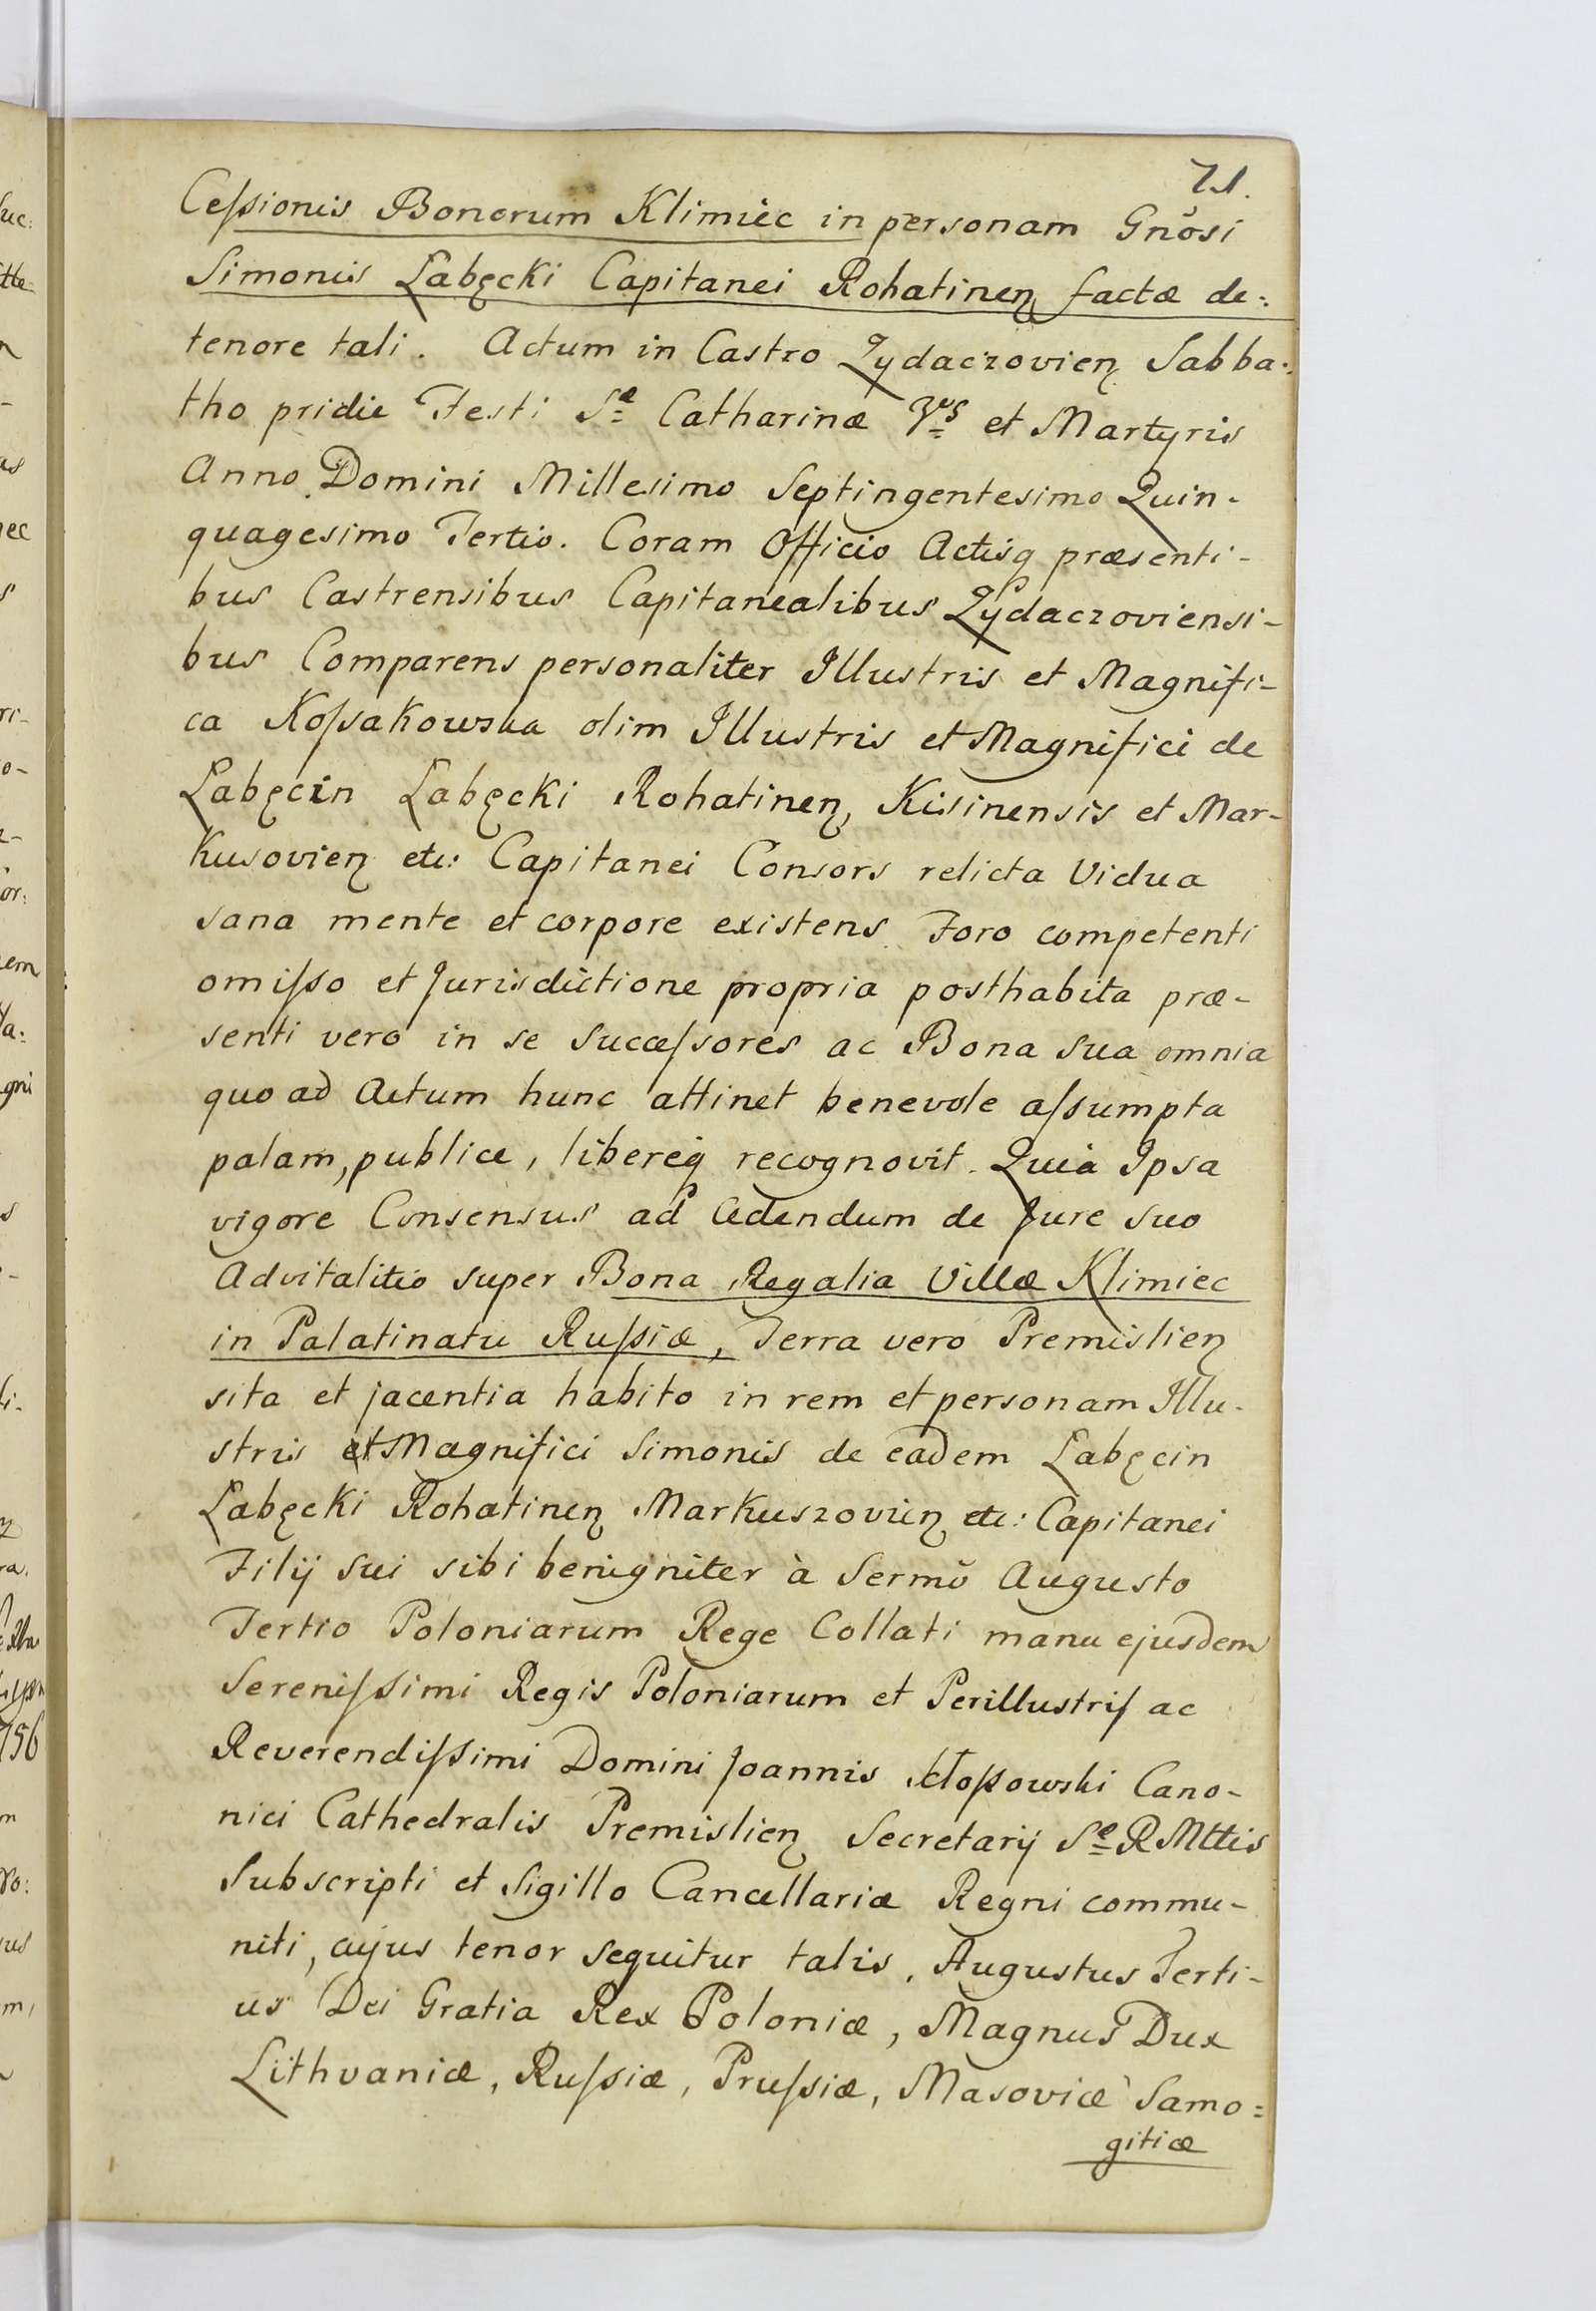 71.
Ceſsionis Bonorum Klimiec in personam Gnõsi
Simonis Łabęcki Capitanei Rohatineń factæ de:
tenore tali. Actum in Castro Zydaczovień Sabba:
tho pridie Festi Sæ Catharinæ Vgs et Martyris
Anno Domini Millesimo Septingentesimo Quin-
quagesimo Tertio. Coram Officio Actisq præsenti-
bus Castrensibus Capitanealibus Zydaczoviensi-
bus Comparens personaliter Illustris et Magnifi-
ca Koſsakowska olim Illustris et Magnifici de
Łabęcin Łabęcki Rohatineń, Kisinensis et Mar-
kusovień etc: Capitanei Consors relicta Vidua
sana mente et corpore existens Foro competenti
omiſso et Jurisdictione propria posthabita præ-
senti vero in se Succeſsores ac Bona sua omnia
quo ad Actum hunc attinet benevole aſsumpta
palam, publice, libereq recognovit. Quia Ipsa
vigore Consensus ad Cedendum de Jure suo
Advitalitio super Bona Regalia Villæ Klimiec
in Palatinatu Ruſsiæ, Terra vero Premislień
sita et jacentia habito in rem et personam Illu-
stris et Magnifici Simonis de eadem Łabęcin
Łabęcki Rohatineń Markuszovień etc: Capitanei
Filij sui sibi benigniter à Sermõ Augusto
Tertio Poloniarum Rege Collati manu ejusdem
Sereniſsimi Regis Poloniarum et Perillustris ac
Reverendiſsimi Domini Joannis Cano-
nici Cathedralis Premislień Secretarij Sæ R Mttis
Subscripti et Sigillo Cancellariæ Regni commu-
niti, cujus tenor sequitur talis. Augustus Terti-
us Dei Gratia Rex Poloniæ, Magnus Dux
Lithvaniæ, Ruſsiæ, Pruſsiæ, Masoviæ Samo=
gitiæ